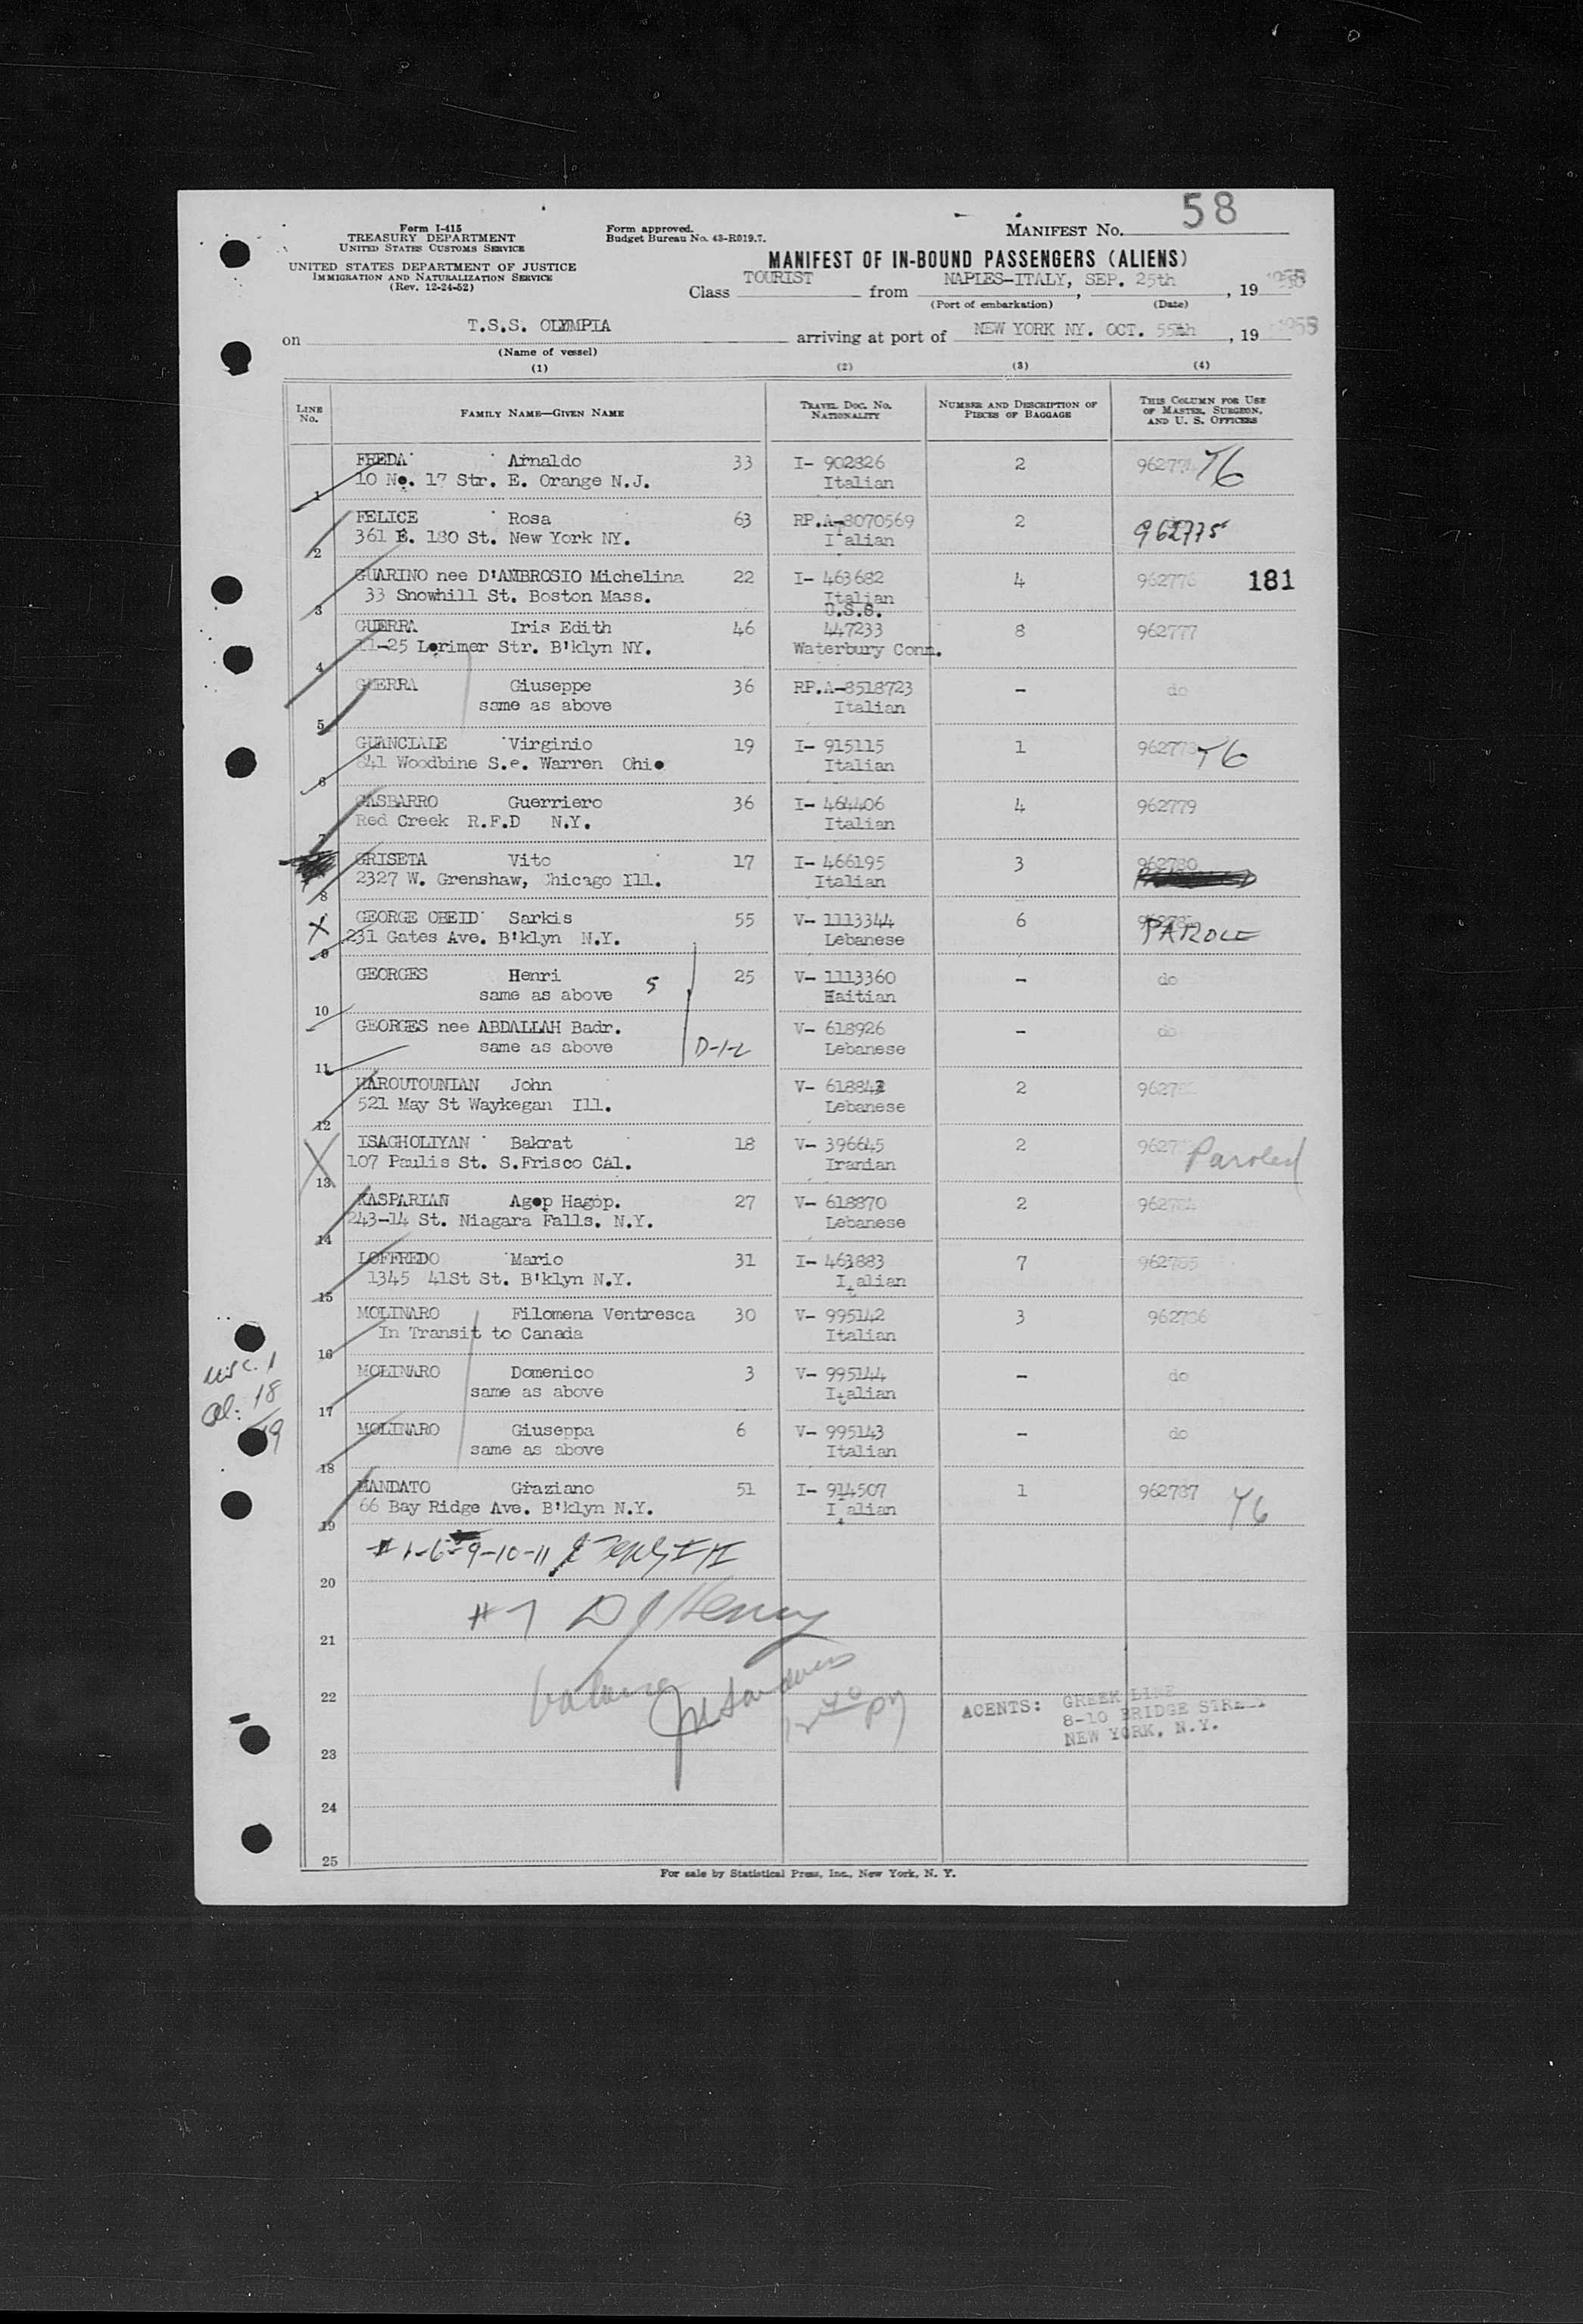 58
Form I-415
TREASURY DEPARTMENT
UNITED STATES CUSTOMS SERVICE
UNITED STATES DEPARTMENT OF JUSTICE
IMMIGRATION AND NATURALIZATION SERVICE
(Rev. 12-24-52)
Form approved.
Budget Bureau No. 43-R019.7.
MANIFEST NO.
MANIFEST OF IN-BOUND PASSENGERS (ALIENS)
Class TOURIST from NAPLES-ITALY, SEP. 25th, 19
(Port of embarkation) (Date)
on T.S.S. OLYMPIA arriving at port of NEW YORK NY. OCT. 55th, 19
(Name of vessel)
(1) (2) (3) (4)
LINE No. FAMILY NAME—GIVEN NAME TRAVEL DOC. NO. NATIONALITY NUMBER AND DESCRIPTION OF PIECES OF BAGGAGE THIS COLUMN FOR USE OF MASTER, SURGEON, AND U. S. OFFICERS
1 FREDA Arnaldo 33 I- 902826 2
10 No. 17 Str. E. Orange N.J. Italian
2 FELICE Rosa 63 RP.A-8070569 2 962775
361 E. 180 St. New York NY. Italian
3 GUARINO nee D'AMBROSIO Michelina 22 I- 463682 4 962776 181
33 Snowhill St. Boston Mass. Italian
U.S.S.
4 GUERRA Iris Edith 46 447233 8 962777
11-25 Lorimer Str. B'klyn NY. Waterbury Conn.
5 GUERRA Giuseppe 36 RP.A-8518723 - do
same as above Italian
6 GUANCIALE Virginio 19 I- 915115 1
841 Woodbine S.e. Warren Ohio Italian
7 GASBARRO Guerriero 36 I- 464406 4 962779
Red Creek R.F.D N.Y. Italian
8 GRISETA Vito 17 I- 466195 3 962780
2327 W. Grenshaw, Chicago Ill. Italian
9 GEORGE OBEID Sarkis 55 V- 1113344 6
231 Gates Ave. B'klyn N.Y. Lebanese PAROLE
10 GEORGES Henri 25 V- 1113360 - do
same as above 5 Haitian
11 GEORGES nee ABDALLAH Badr. V- 618926 - do
same as above D-1-2 Lebanese
12 HAROUTOUNIAN John V- 618842 2
521 May St Waykegan Ill. Lebanese
13 ISAGHOLIYAN Bakrat 18 V- 396645 2 Paroled
107 Paulis St. S.Frisco Cal. Iranian
14 KASPARIAN Agop Hagop. 27 V- 618870 2 962784
243-14 St. Niagara Falls. N.Y. Lebanese
15 LOFFREDO Mario 31 I- 463883 7 962785
1345 41St St. B'klyn N.Y. Italian
16 MOLINARO Filomena Ventresca 30 V- 995142 3 962786
In Transit to Canada Italian
17 MOLINARO Domenico 3 V- 995144 - do
same as above Italian
18 MOLINARO Giuseppa 6 V- 995143 - do
same as above Italian
19 MANDATO Graziano 51 I- 914507 1 962787
66 Bay Ridge Ave. B'klyn N.Y. Italian
20
21
22
23
24
25
usc. 1
al: 18
19
#7
ACENTS: GREEK LINE
8-10 BRIDGE STREET
NEW YORK, N.Y.
For sale by Statistical Press, Inc., New York, N. Y.